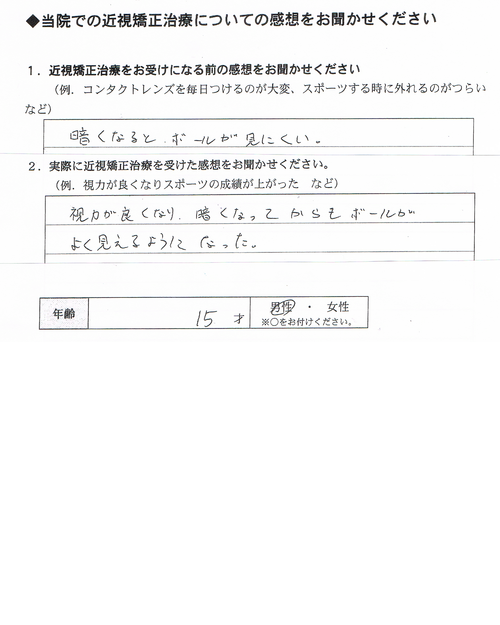 ◆当院での近視矯正治療についての感想をお聞かせください
１．近視矯正治療をお受けになる前の感想をお聞かせください
（例．コンタクトレンズを毎日つけるのが大変、スポーツする時に外れるのがつらい
など）
暗くなると、ボールが見にくい。
２．実際に近視矯正治療を受けた感想をお聞かせください。
（例．視力が良くなりスポーツの成績が上がった　など）
視力が良くなり、暗くなってからもボールが
よく見えるようになった。
年齢　15　才　男性　・　女性
※○をお付けください。